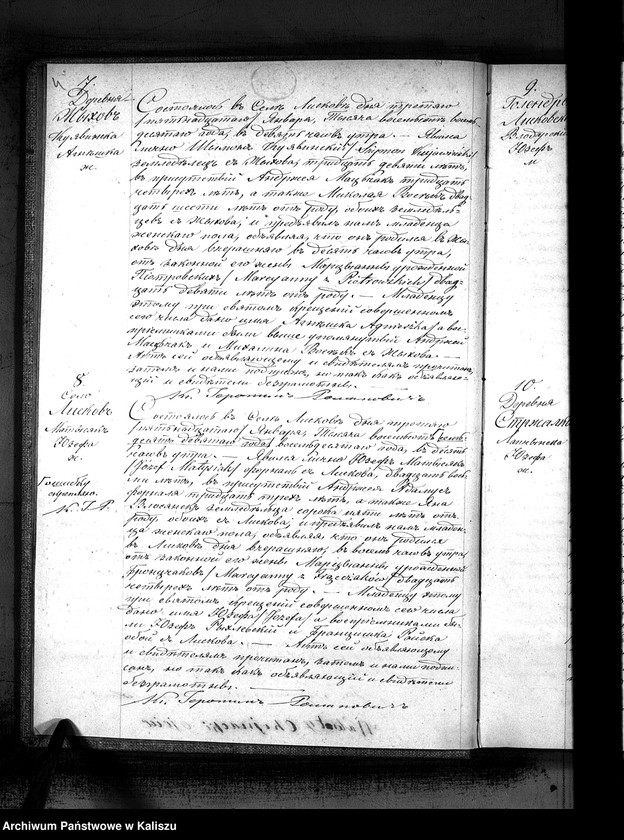 7.
Деревня
Жыховъ
Куявинска
Агнѣшка
ж.
Состоялось въ Селѣ Лисковъ дня третяго
/пятьнадцатаго/ Января, Тысяча восемьсотъ восемь-
десятаго года, въ девять часовъ утра. — Явился
лично Шимонъ Куявинскій /Szymon Kujawiński/
земледѣлецъ съ Жыхова, тридцать девяти лѣтъ,
въ присутствіи Андржея Мацѣякъ тридцать
четырехъ лѣтъ, а также Миколая двад-
цать шести лѣтъ отъ роду, обоихъ земледѣль-
цевъ съ Жыхова; и предъявилъ намъ младенца
женскаго пола, объявляя, что онъ родился въ Жы-
ховѣ дня вчерашняго въ десять часовъ утра,
отъ законной его жены Марцыанны урожденной
Піотровскихъ /Maryanny z Piotrowskich/ двад-
цать девяти лѣтъ отъ роду. — Младенцу
этому при святомъ крещеніи совершенномъ
сего числа дано имя Агнѣшка /Agnieszka/ а вос-
пріемниками были выше упомянутый Андржей
Мацѣякъ и Михалина съ Жыхова. —
Актъ сей объявляющему и свидѣтелямъ прочитанъ,
затѣмъ и нами подписанъ, но такъ какъ объявляю-
щій и свидѣтели безграмотны.
Кс. Геронимъ Романовичъ
8.
Село
Лисковъ
Матысякъ
Юзефа
ж.
Гошибку
К. Г. Р.
Состоялось въ Селѣ Лисковъ дня третяго
/пятьнадцатаго/ Января, Тысяча восемьсотъ семь-
десятъ девятаго года/ восемьдесятаго года, въ десять
часовъ утра. — Явился лично Юзефъ Матысякъ
/Józef Matysiak/ форналь съ Лискова, двадцать восе-
ми лѣтъ, въ присутствіи Андржея Адамусъ
форналя тридцать трехъ лѣтъ, а также Яна
земледѣльца сорока пяти лѣтъ отъ
роду, обоихъ съ Лискова, и предъявилъ намъ младен-
ца женскаго пола, объявляя что онъ родился
въ Лисковѣ дня вчерашняго, въ восемь часовъ утра,
отъ законной его жены Марцыанны урожденной
Францчаковъ /Maryanny z Frączaków/ двадцать
четырехъ лѣтъ отъ роду. — Младенцу этому
при святомъ крещеніи совершенномъ сего числа
дано имя Юзефа /Józefa/ а воспріемниками бы-
ли Юзефъ Рыхлевскій и Францишка
обой съ Лискова. — Актъ сей объявляющему
и свидѣтелямъ прочитанъ, затѣмъ и нами подпи-
санъ, но такъ какъ объявляющій и свидѣтели
безграмотны.
Кс. Геронимъ Романовичъ
9.
Голендры
Лисковскіе
Юзефъ
м
10.
Деревня
Юзефа
ж.
Archiwum Państwowe w Kaliszu